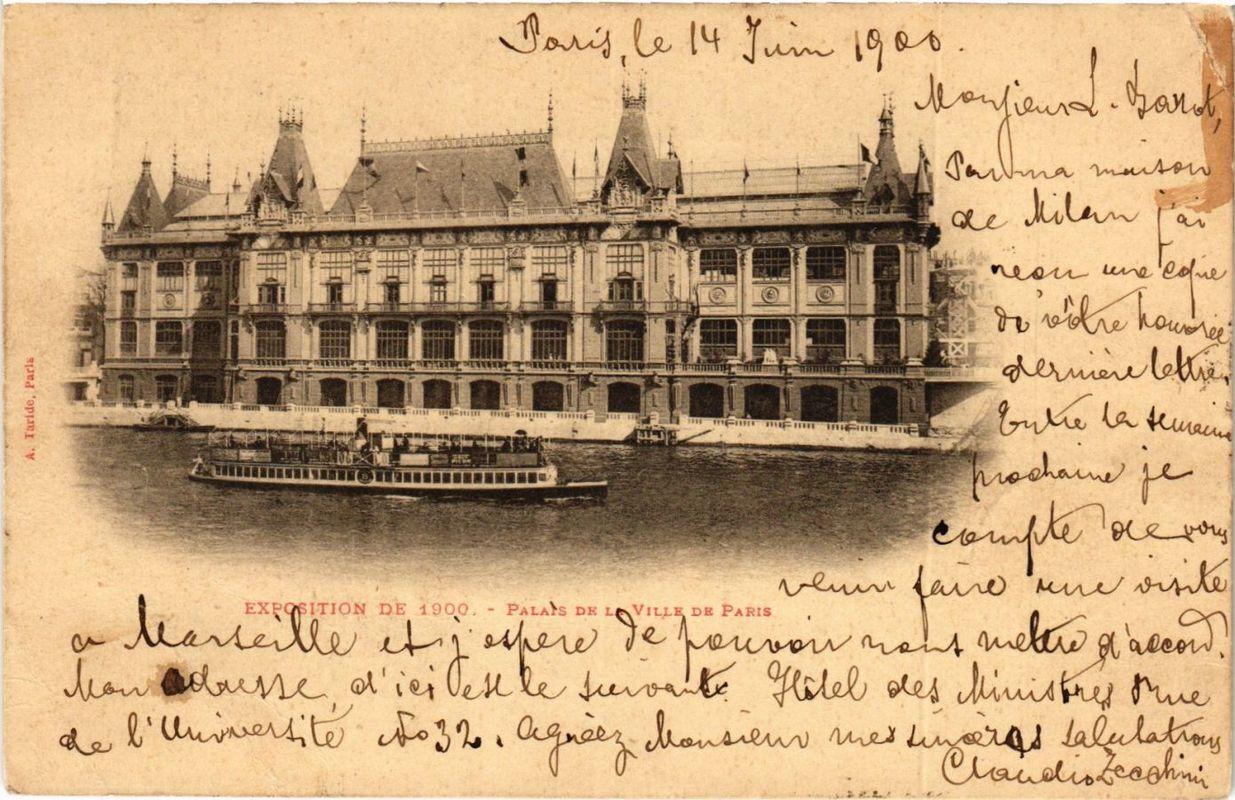 Paris, le 14 Juin 1900.
Monsieur L.
Par ma maison
de Milan j'ai
reçu une copie
de vôtre honorée
dernière lettre.
Entre la semaine
prochaine je
compte de vous
venir faire une visite
a Marseille et j'espère de pouvoir nous mettre d'accord.
Mon adresse d'ici est le suivant: Hôtel des Ministres rue
de l'Université No 32. Agréez Monsieur mes sincères salutations
Claudio Zecchini
EXPOSITION DE 1900. - PALAIS DE LA VILLE DE PARIS
A. Taride, Paris